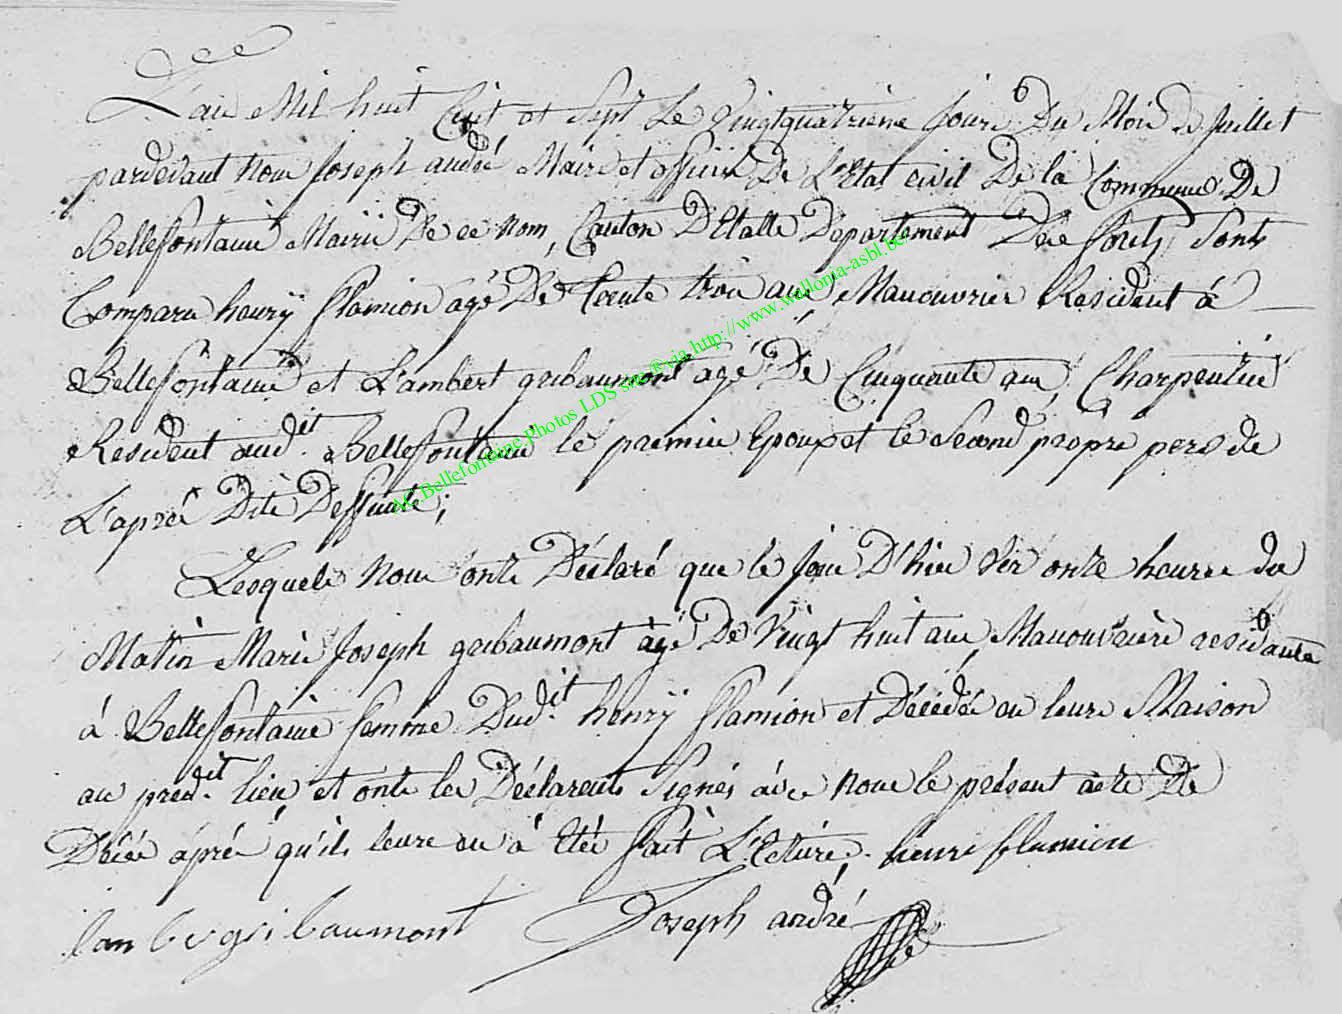 L'an Mil huit Cent et Sept Le Vingtquatrième Jour Du Mois de Juillet
pardevant Nous Joseph andré Maire et officier De L'Etat civil De la Commune De
Bellefontaine Mairie De ce Nom, Canton D'Etalle Departement Des forets, Sont
Comparu henrÿ flamion agé De trente trois ans, Manouvrier Resident à
Bellefontaine et L'ambert gribaumont agé De Cinquante ans, Charpentier
Resident aud.it Bellefontaine le premier Epoux et le Second propre pere de
L'aprés Dite Deffunte;
Lesquels Nous onts Déclaré que le Jour D'hier Ver onze heures du
Matin Marie Joseph gribaumont àgé De Vingt huit ans, Manouvrière residante
à Bellefontaine femme Dud.it henrÿ flamion et Décédée en leurs Maison
au pred.it lieu, et onts les Déclarents Signés avec Nous le présent acte De
Décés àprés qu'ils leurs en à Etée fait L'Ecture. henri flamion
lanber gribaumont Joseph andré
AC Bellefontaine Photos LDS via http://www.wallonia-asbl.be